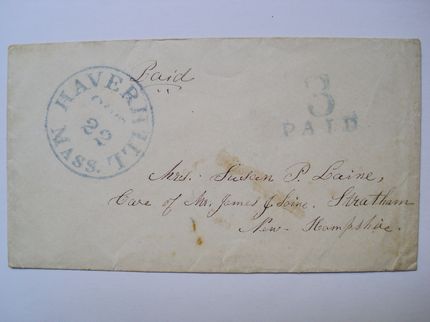 HAVERHILL
22
MASS.
Paid
3
PAID
Mrs. Susan P. Laine,
Care of Mr. James J Laine. Stratham
New-Hampshire.